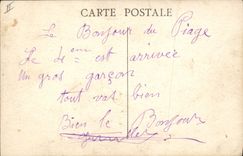 II
CARTE POSTALE
Le Bonjour du Piage
Le 4eme est arrivée
un gros garçon
tout vat bien
Bien le Bonjour